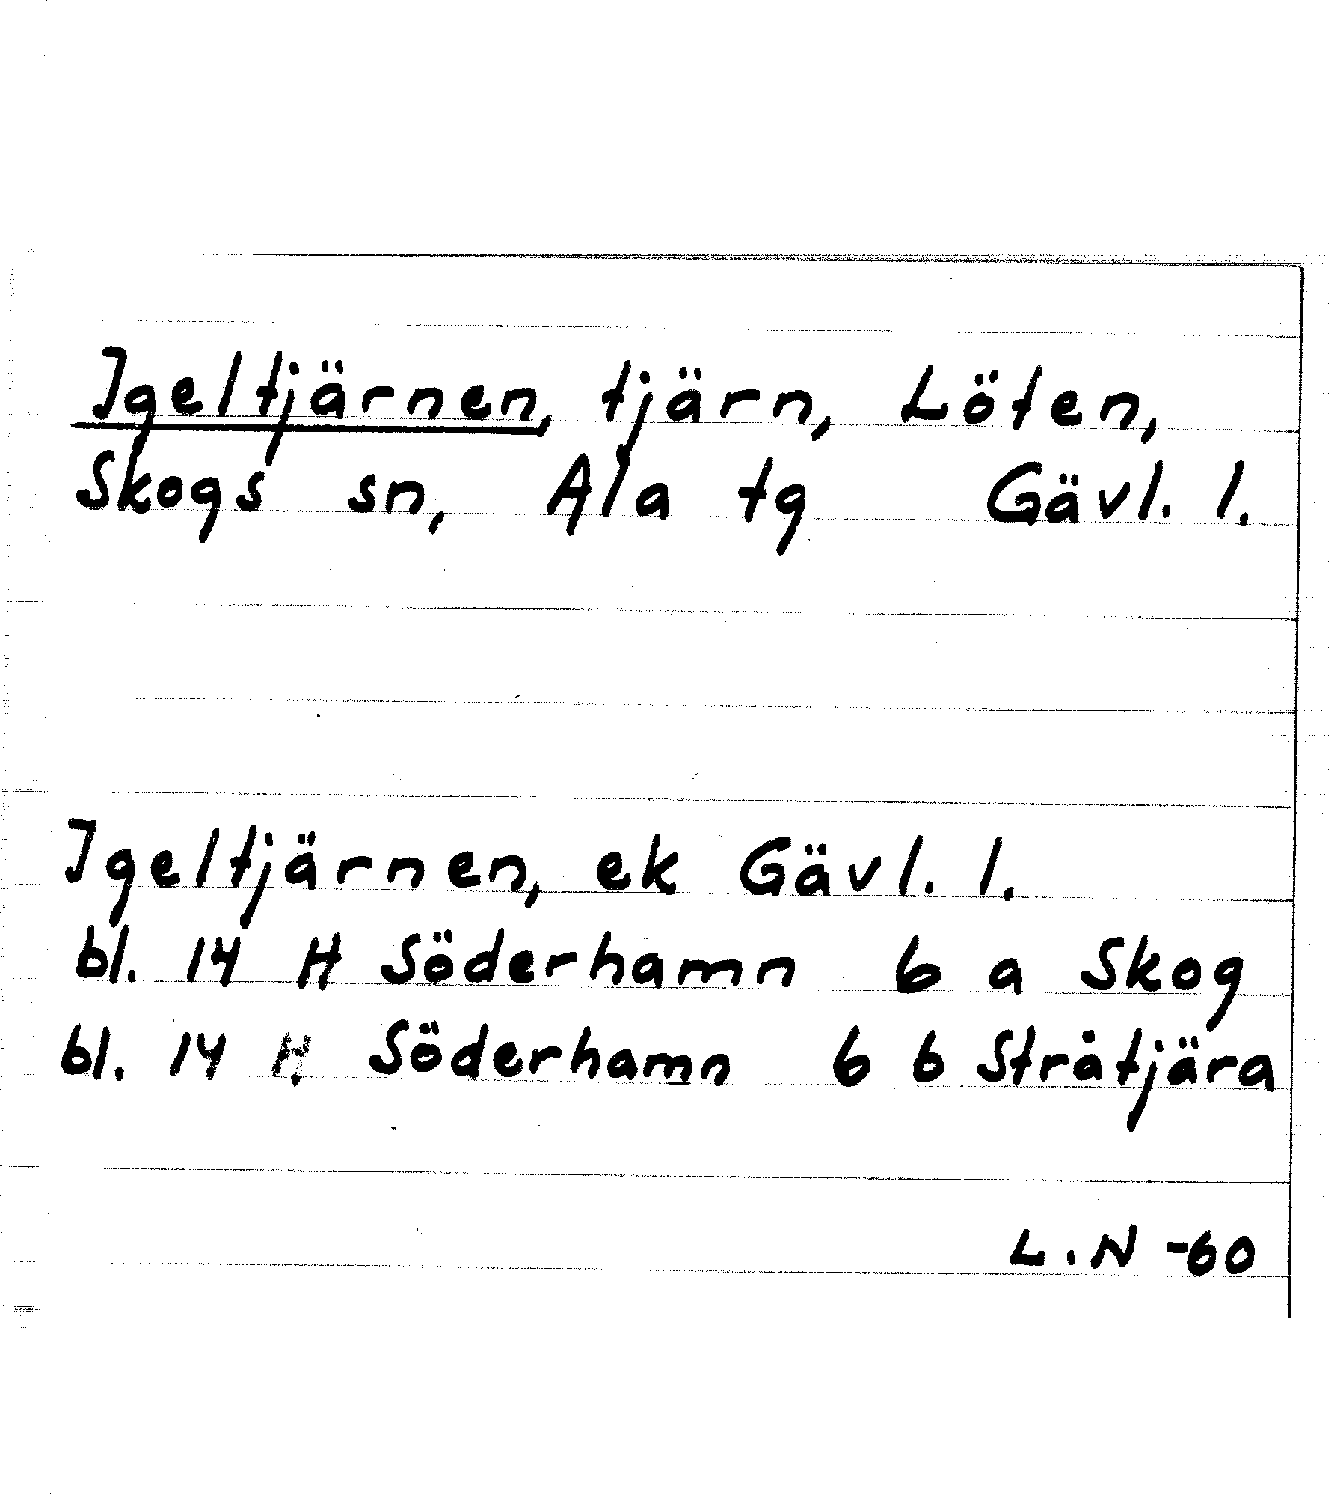 Igeltjärnen, tjärn, Löten,
Skogs sn, Ala tg Gävl. l.
Igeltjärnen, ek Gävl. l.
bl. 14 H Söderhamn 6 a Skog
bl. 14 H Söderhamn 6 b Stråtjära
L.N -60